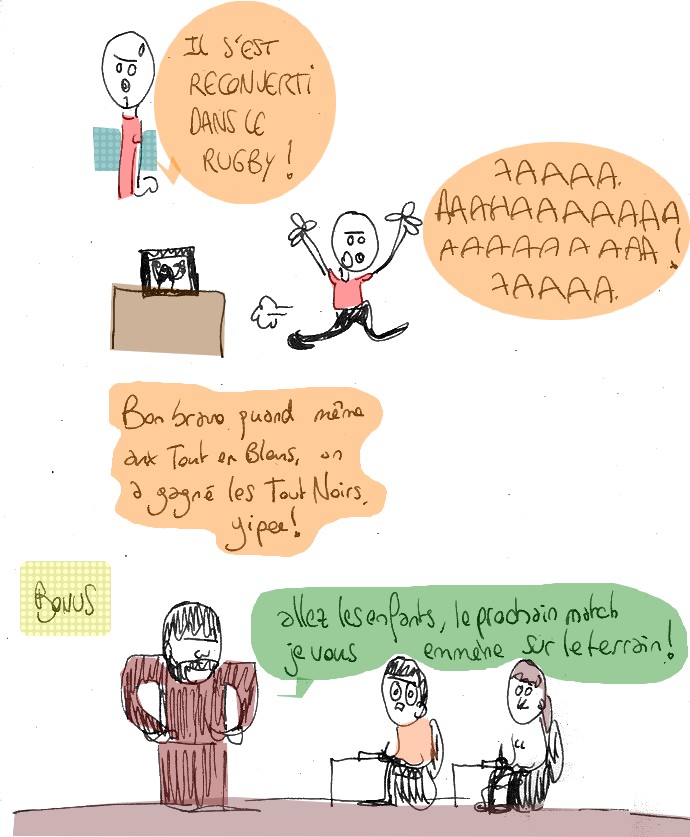 IL S'EST
RECONVERTI
DANS LE
RUGBY !
AAAAA.
AAAHAAAAAAAA
AAAAAAAAAA !
AAAAA.
Bon bravo quand même
aux Tout en Bleus, on
a gagné les Tout Noirs,
yipee!
BONUS
allez les enfants, le prochain match
je vous emmène sur le terrain!